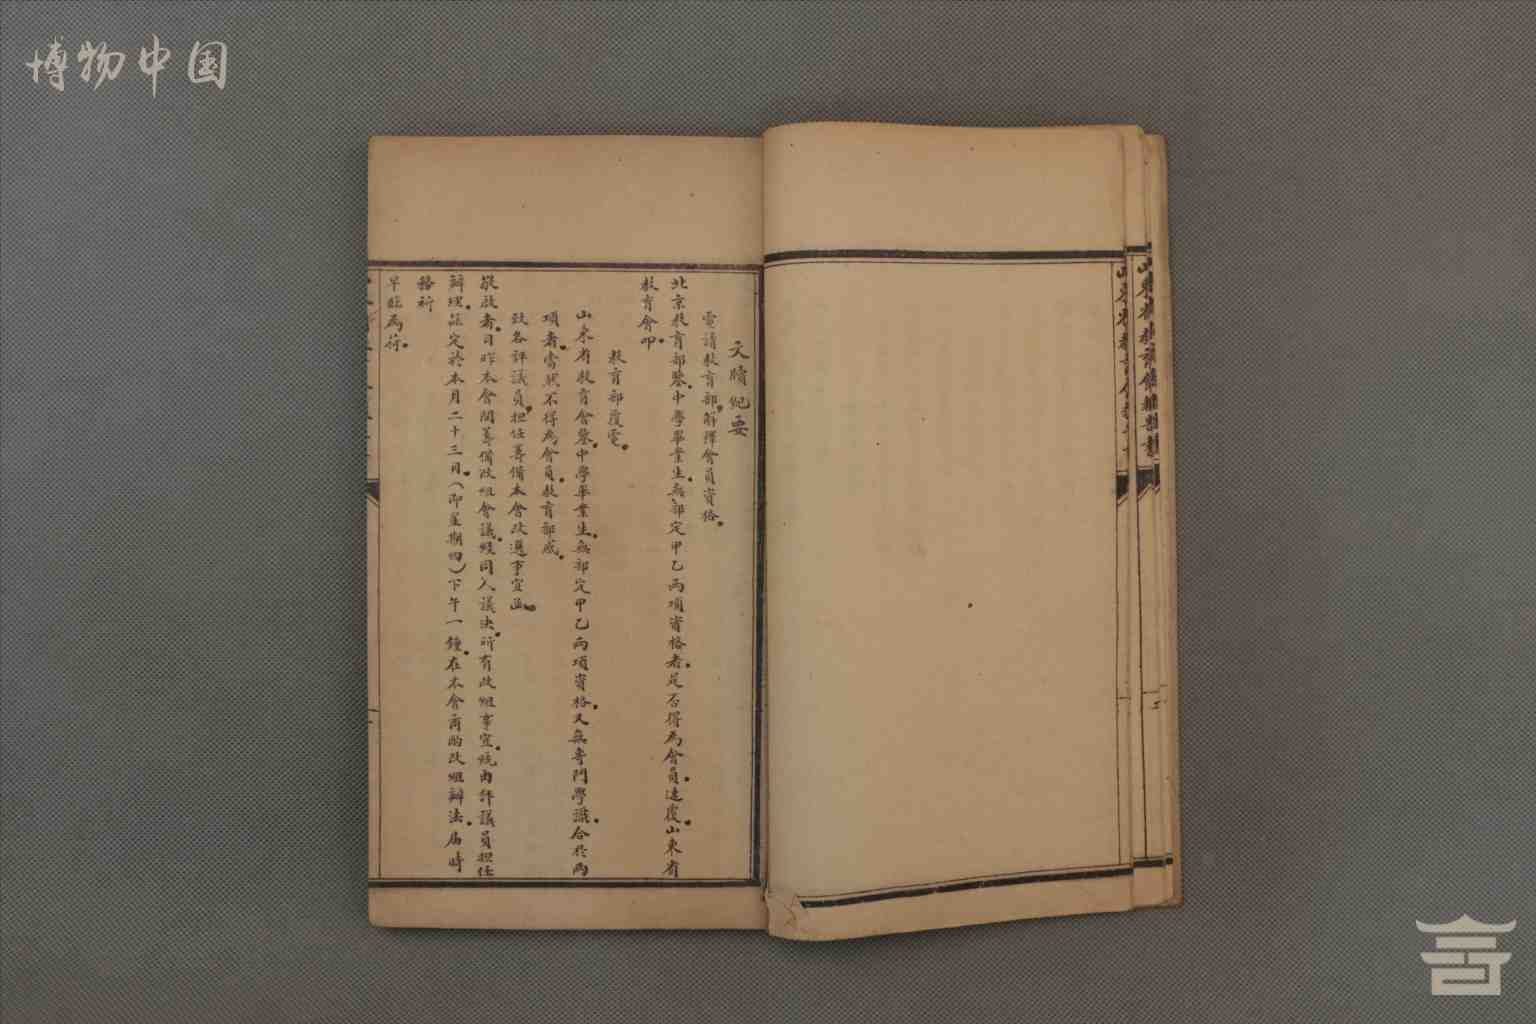 博物中国
文牘紀要
電請教育部解釋會員資格。
北京教育部鑒。中學畢業生。無部定甲乙兩項資格者。是否得為會員。速覆。山東省
教育會叩。
教育部覆電。
山東省教育會鑒。中學畢業生。無部定甲乙兩項資格。又無專門學識。合於兩
項者。當然不得為會員。教育部
致各評議員。担任籌備本會改選事宜函。
敬啟者。日昨本會開籌備改組會議。經同人議決。所有改組事宜。統由評議員担任
辦理。茲定於本月二十三日。(即星期四)下午一鐘。在本會商酌改組辦法。屆時
務祈
早臨為荷。